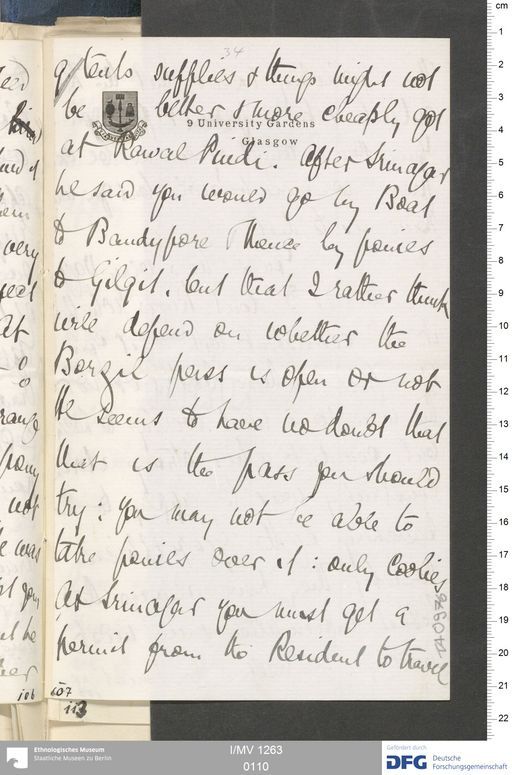 34
of tents supplies & things might not
be better & more cheaply got
9 University Gardens
Glasgow
at Rawal Pindi. After Srinagar
he said you would go by Boat
to Bandypore & thence by ponies
to Gilgit, but that I rather think
will depend on whether the
Borzil pass is open or not
He seems to have no doubt that
that is the pass you should
try. You may not be able to
take ponies over it: only Coolies
At Srinagar you must get a
permit from the Resident to travel
very
At
not
he was
106
107
113
cm
1
2
3
4
5
6
7
8
9
10
11
12
13
14
15
16
17
18
19
20
21
22
Ethnologisches Museum
Staatliche Museen zu Berlin
I/MV 1263
0110
Gefördert durch
DFG Deutsche
Forschungsgemeinschaft